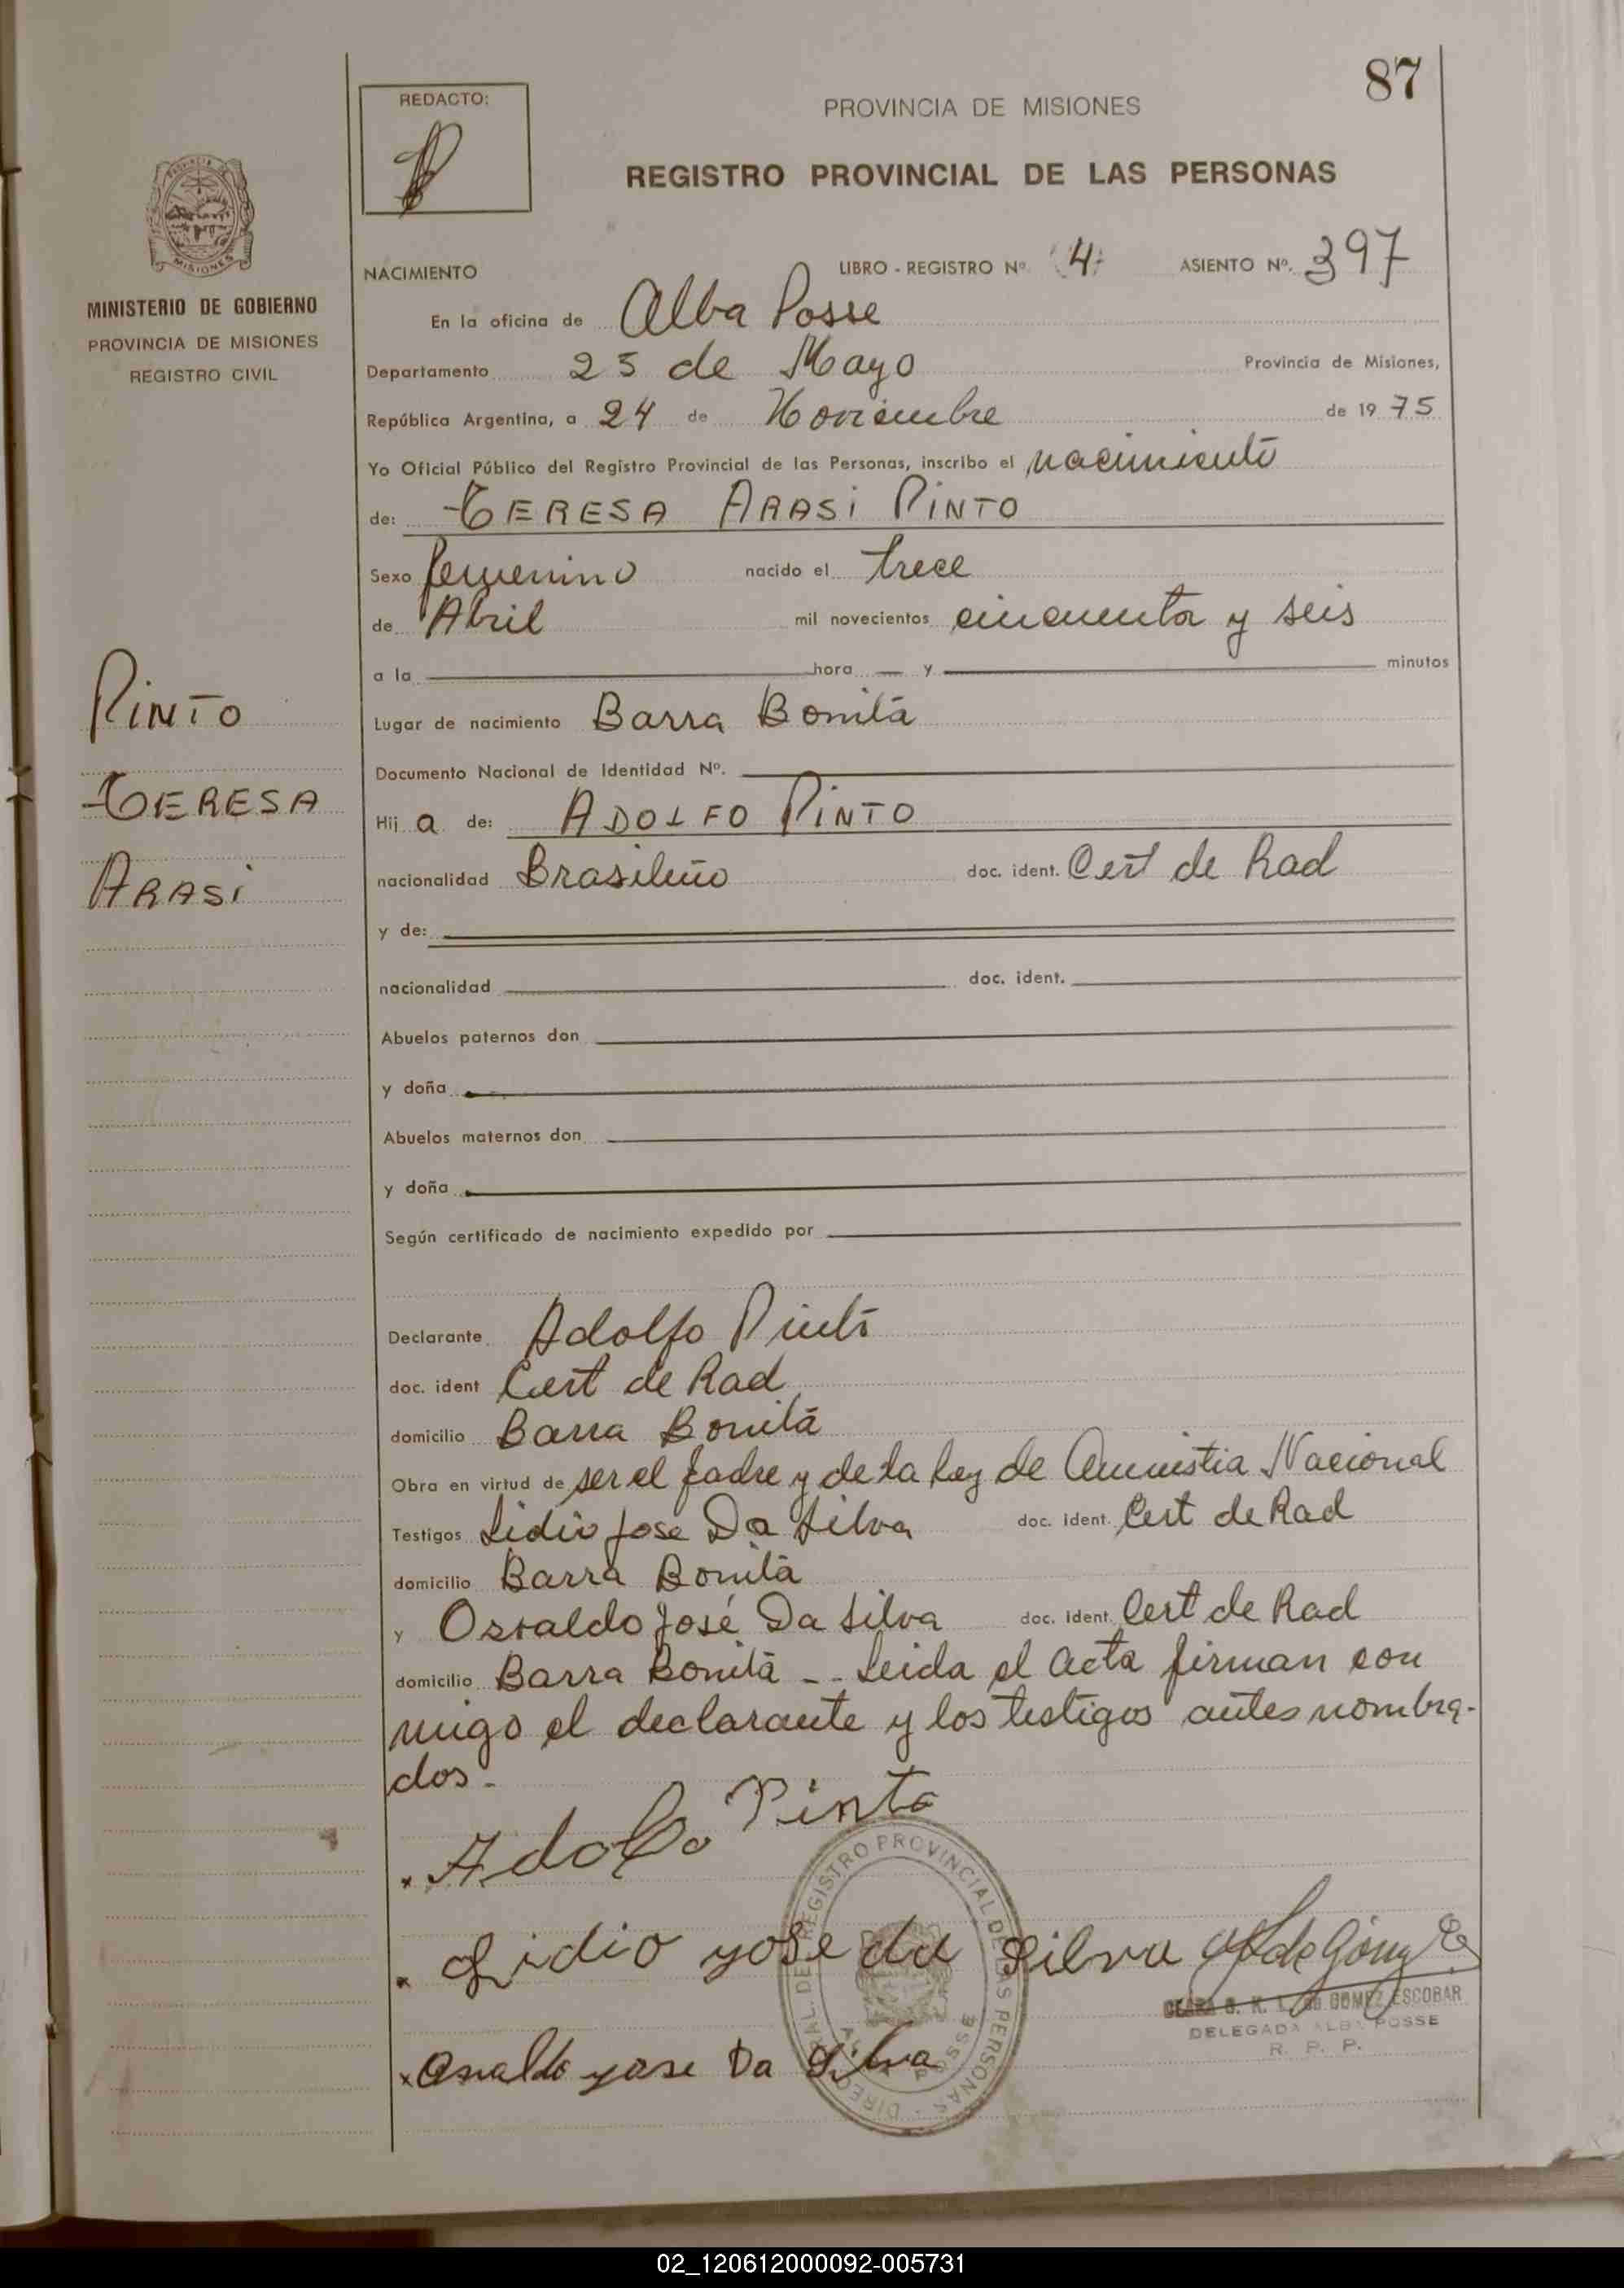 87
REDACTO:
PROVINCIA DE MISIONES
REGISTRO PROVINCIAL DE LAS PERSONAS
MISIONES
MINISTERIO DE GOBIERNO
PROVINCIA DE MISIONES
REGISTRO CIVIL
NACIMIENTO LIBRO - REGISTRO Nº 4 ASIENTO Nº. 397
En la oficina de Alba Posse
Departamento 25 de Mayo Provincia de Misiones,
República Argentina, a 24 de Noviembre de 1975
Yo Oficial Público del Registro Provincial de las Personas, inscribo el nacimiento
de: TERESA ARASI PINTO
Sexo femenino nacido el trece
de Abril mil novecientos cincuenta y seis
a la hora y minutos
Lugar de nacimiento Barra Bonita
Documento Nacional de Identidad Nº.
Hij a de: ADOLFO PINTO
nacionalidad Brasileño doc. ident. Cert de Rad
y de:
nacionalidad doc. ident.
Abuelos paternos don
y doña
Abuelos maternos don
y doña
Según certificado de nacimiento expedido por
Declarante Adolfo Pinto
doc. ident Cert de Rad
domicilio Barra Bonita
Obra en virtud de ser el padre y de la Ley de Amnistia Nacional
Testigos Lidio Jose Da Silva doc. ident. Cert de Rad
domicilio Barra Bonita
y Osvaldo José Da Silva doc. ident. Cert de Rad
domicilio Barra Bonita -- Leida el acta firman con
migo el declarante y los testigos antes nombra-
dos-
PINTO
TERESA
ARASI
x Adolfo Pinto
x Lidio yose da Silva
x Osvaldo yose Da Silva
DIRECC GRAL. DEL REGISTRO PROVINCIAL DE LAS PERSONAS
ALBA POSSE
GOMEZ ESCOBAR
DELEGADA ALBA POSSE
R. P. P.
02_120612000092-005731